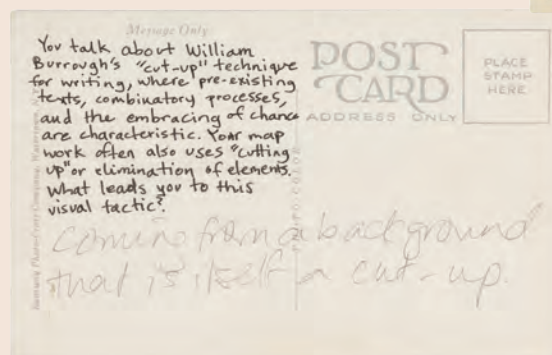 Message Only
You talk about William
Burrough's "cut-up" technique
for writing, where pre-existing
texts, combinatory processes,
and the embracing of chance
are characteristic. Your map
work often also uses "cutting
up" or elimination of elements.
What leads you to this
visual tactic?
coming from a background
that is itself a cut-up.
POST
CARD
ADDRESS ONLY
PLACE
STAMP
HERE